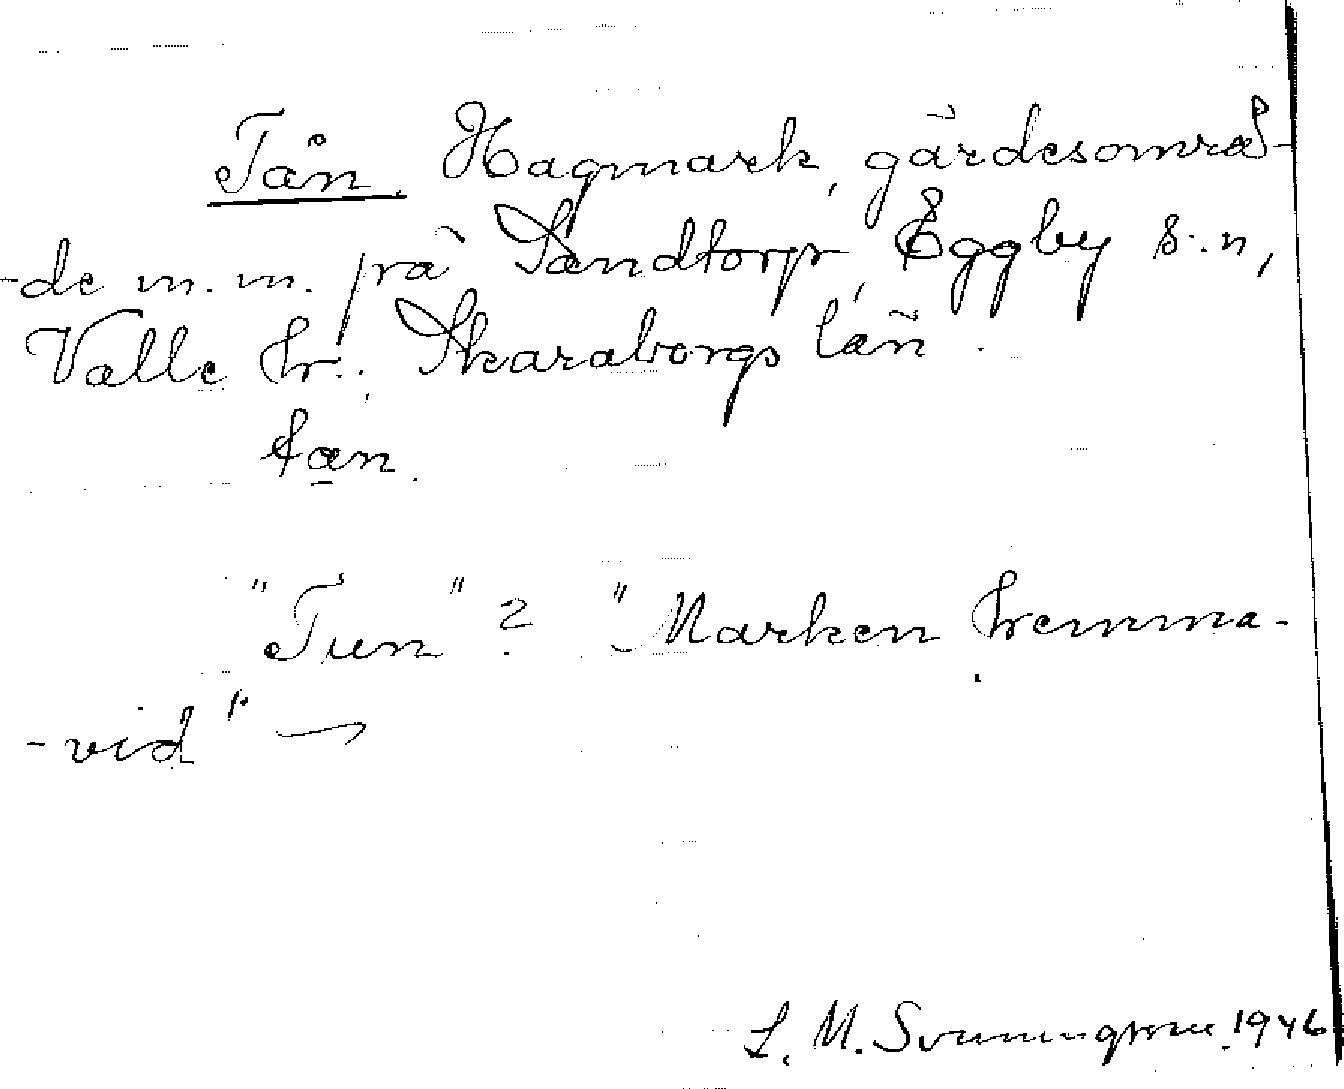 Tån. Hagmark, gärdesområ-
-de m.m. på Sandtorp, Eggby s:n,
Valle hr., Skaraborgs län.
tan.
"Tun"? "Marken hemma-
-vid" —
L. M. Svenungsson 1946